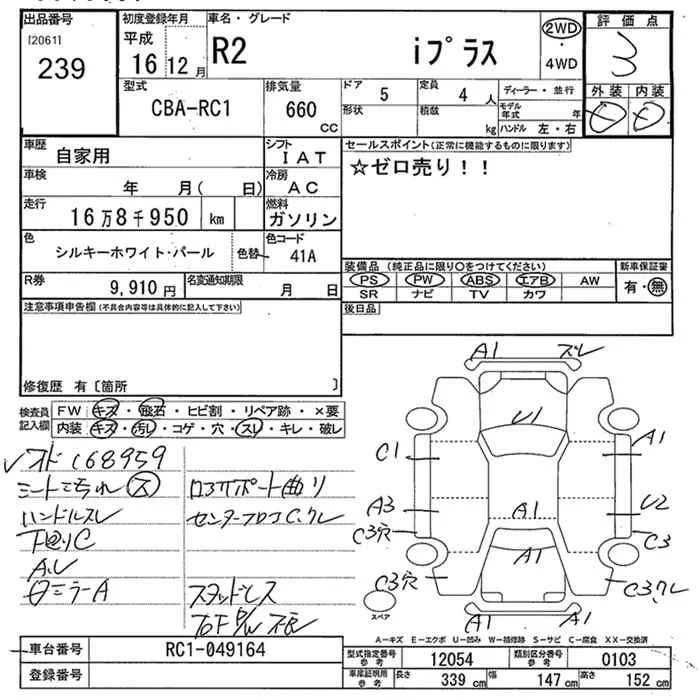 出品番号 初度登録年月 車名・グレード 評価点
[2061] 平成 R2 iプラス 2WD ・ 4WD 3
239 16 12月
型式 排気量 ドア 5 定員 4人 ディーラー・並行 外装 内装
CBA-RC1 660 CC 形状 積載 kg モデル年式 年 ハンドル 左・右
車歴 自家用 シフト IAT セールスポイント(正常に機能するものに限ります)
車検 年 月( 日) 冷房 AC ☆ゼロ売り!!
走行 16万8千950 km 燃料 ガソリン
色 シルキーホワイト・パール 色替 色コード 41A
装備品(純正品に限り〇をつけてください) 新車保証書
R券 9,910円 名変通知期限 月 日 PS PW ABS エアB AW 有・無
SR ナビ TV カワ
注意事項申告欄(不具合内容等は具体的に記入して下さい) 後日品
修復歴 有〔箇所 〕
検査員記入欄 FW キズ・飛石・ヒビ割・リペア跡・×要
内装 キズ・汚レ・コゲ・穴・スレ・キレ・破レ
168959
ハンドルスレ
下廻りC
スタッドレス
A1 ズレ
U1
C1 A1
A3 A1 U2
C3穴 C3
A1
C3穴 C3クレ
スペア A1 A1
A-キズ E-エクボ U-凹み W-補修跡 S-サビ C-腐食 XX-交換済
車台番号 RC1-049164 型式指定番号 参考 12054 類別区分番号 参考 0103
登録番号 車庫証明用 参考 長さ 339 cm 幅 147 cm 高さ 152 cm